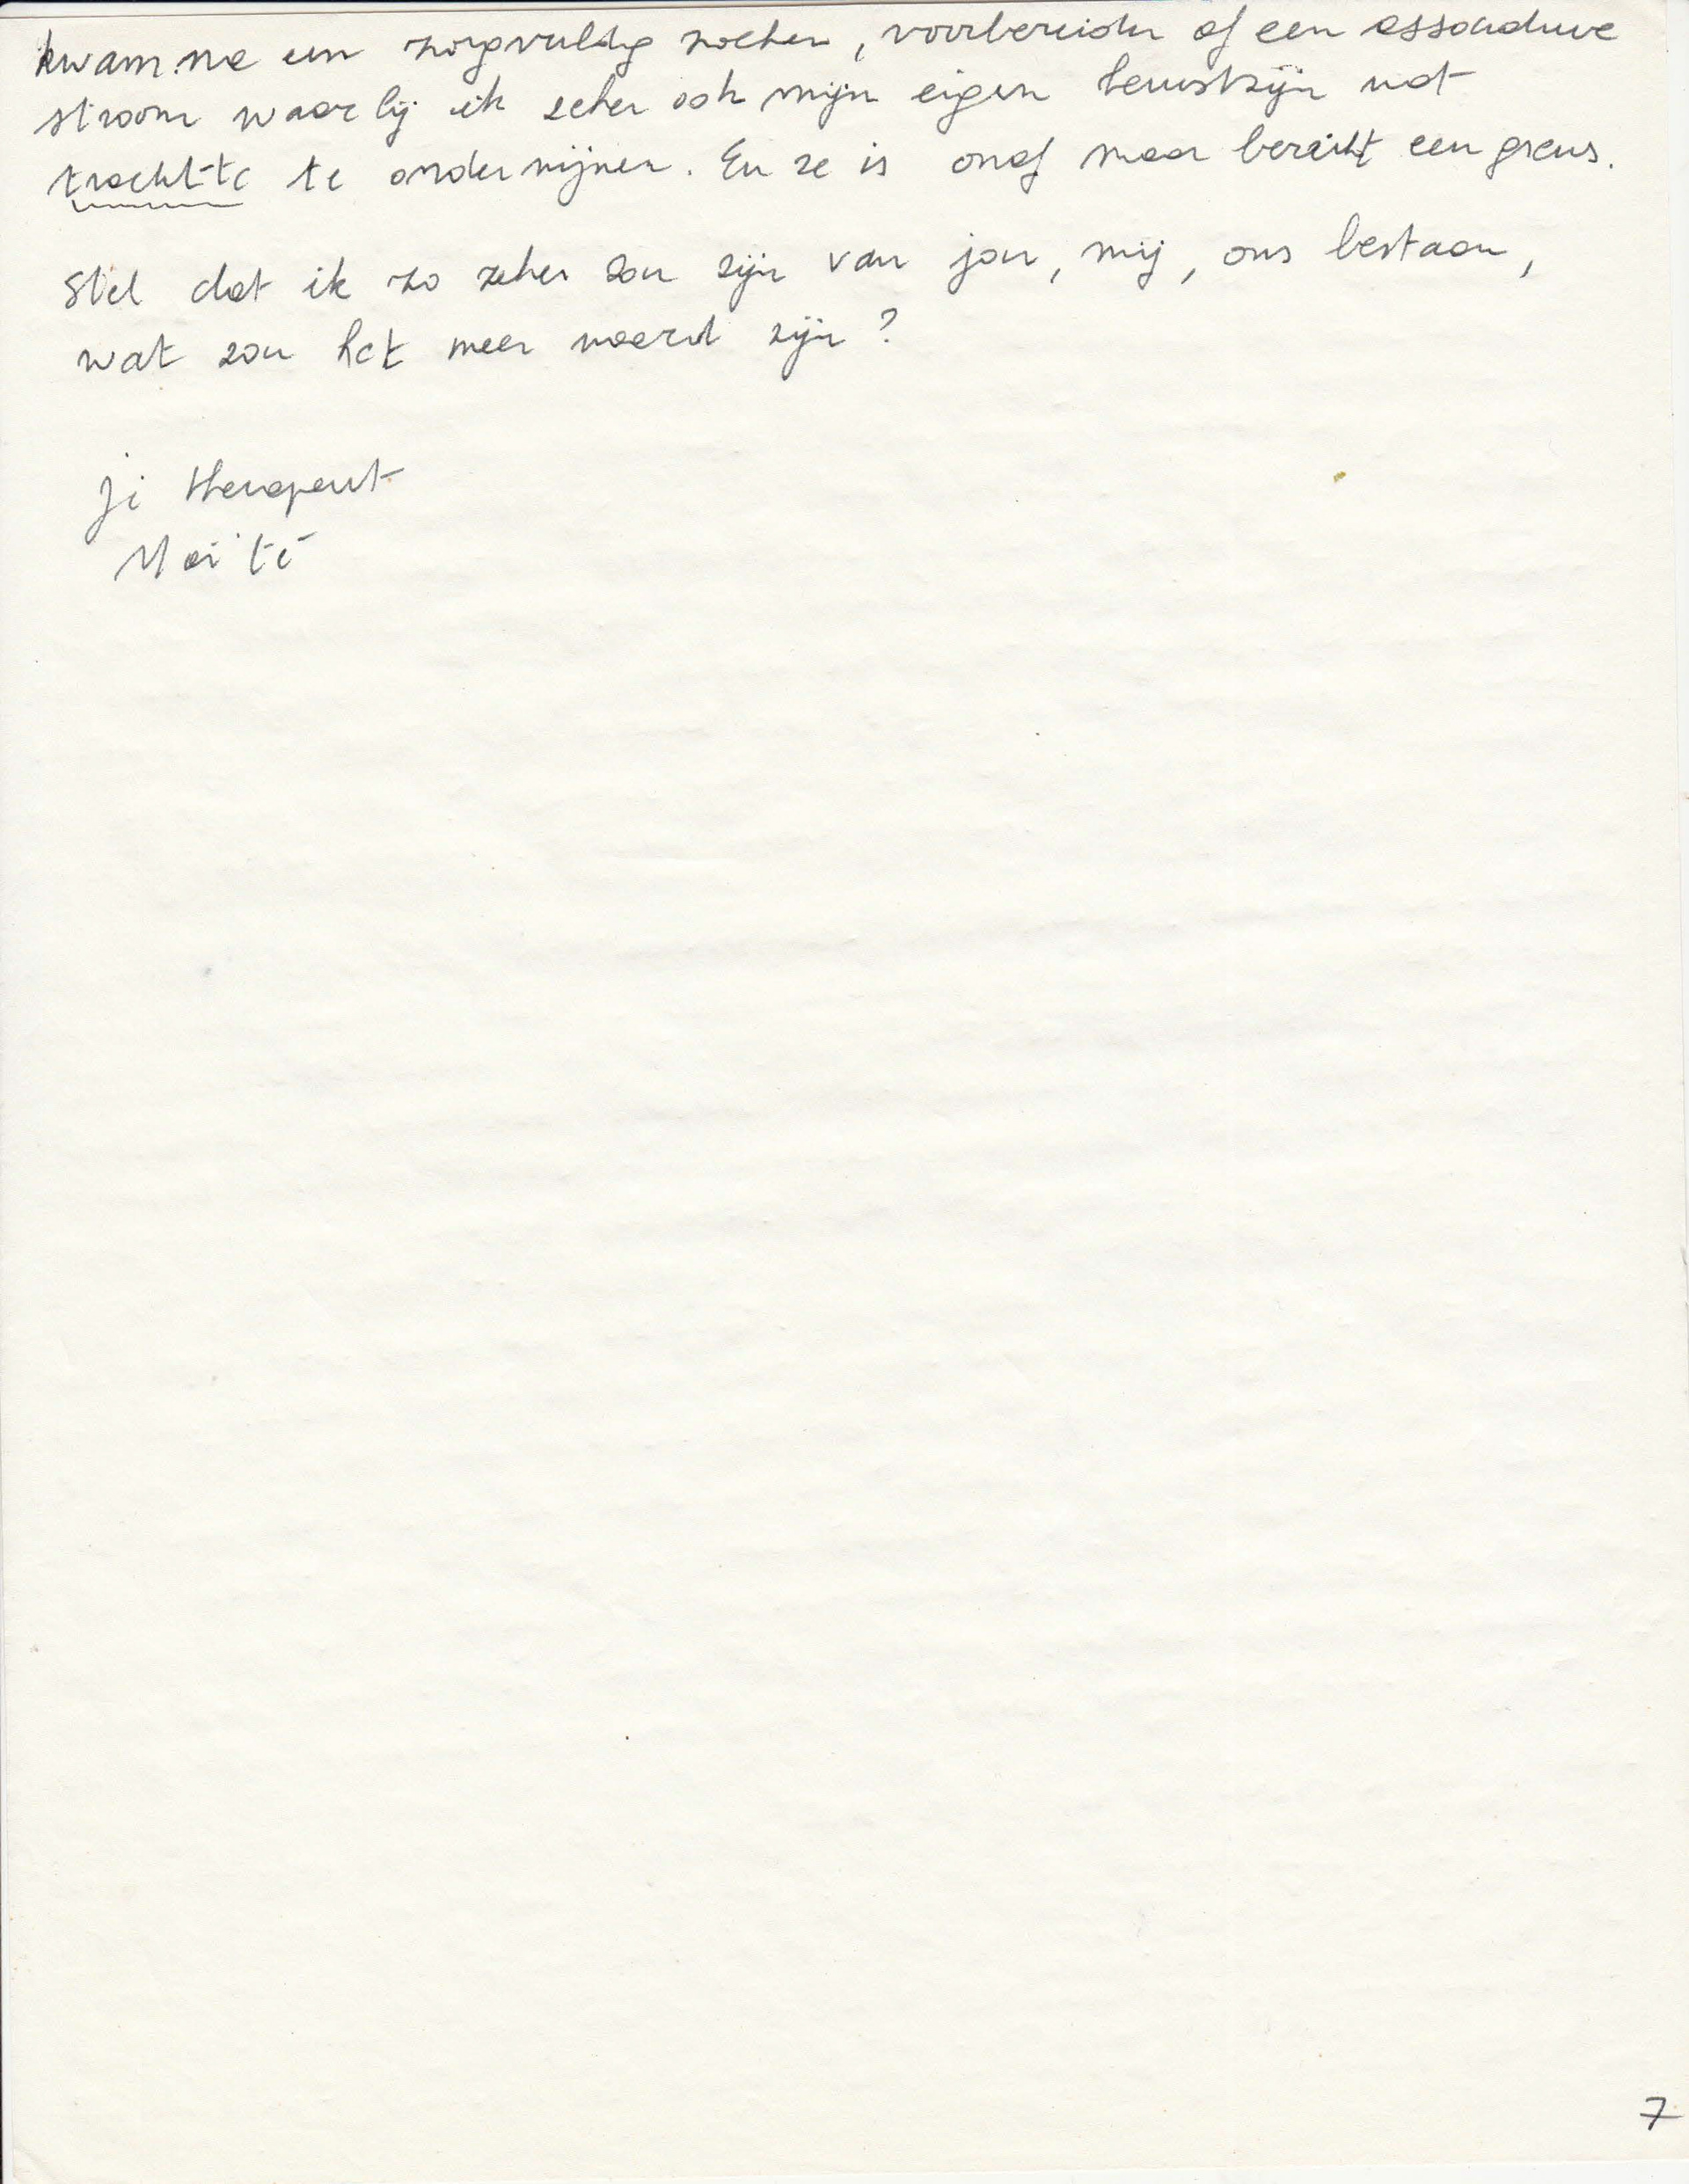 kwam na een zorgvuldig zoeken, voorbereiden of een associatieve
stroom waarbij ik zeker ook mijn eigen bewustzijn wat
trachtte te ondermijnen. En ze is onaf maar bereikt een grens.
Stel dat ik zo zeker zou zijn van jou, mij, ons bestaan,
wat zou het meer waard zijn?
je therapeut
Maïté
7